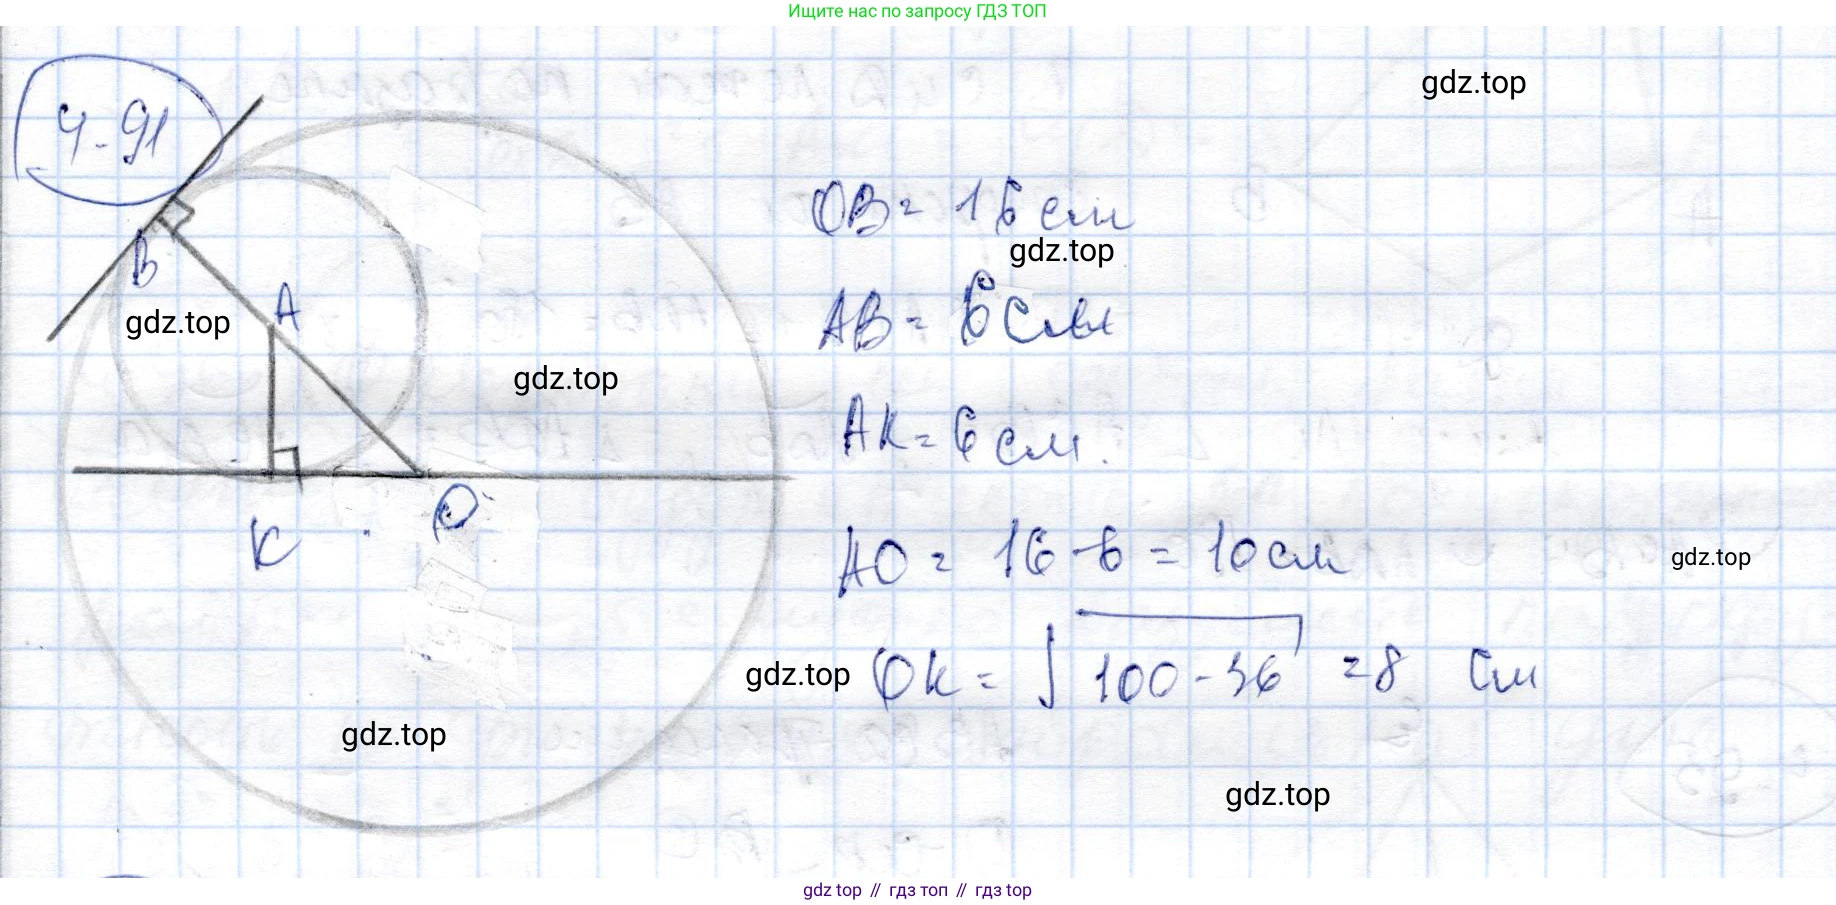 Ищите нас по запросу ГДЗ ТОП
4-91
gdz.top
OB = 16 см
gdz.top
B
A
AB = 6 см
gdz.top
gdz.top
AK = 6 см.
K
O
AO = 16 - 6 = 10 см
gdz.top
gdz.top
OK = √100 - 36 = 8 см
gdz.top
gdz.top
gdz top // гдз топ // gdz top